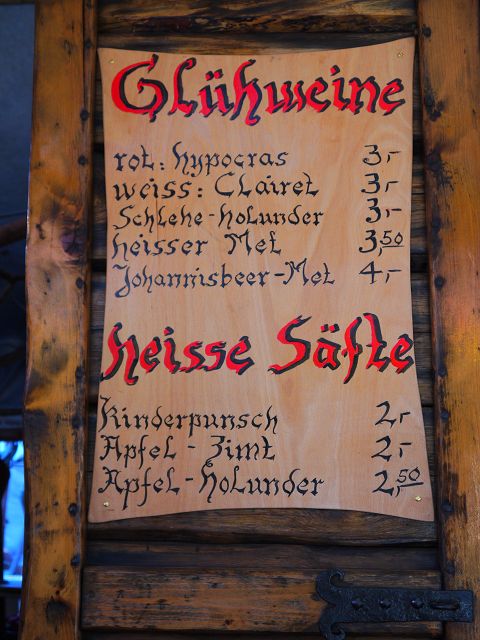 Glühweine
rot: Hypocras 3,-
weiss: Clairet 3,-
Schlehe-Holunder 3,-
heisser Met 3,50
Johannisbeer-Met 4,-
heisse Säfte
Kinderpunsch 2,-
Apfel - Zimt 2,-
Apfel-Holunder 2,50